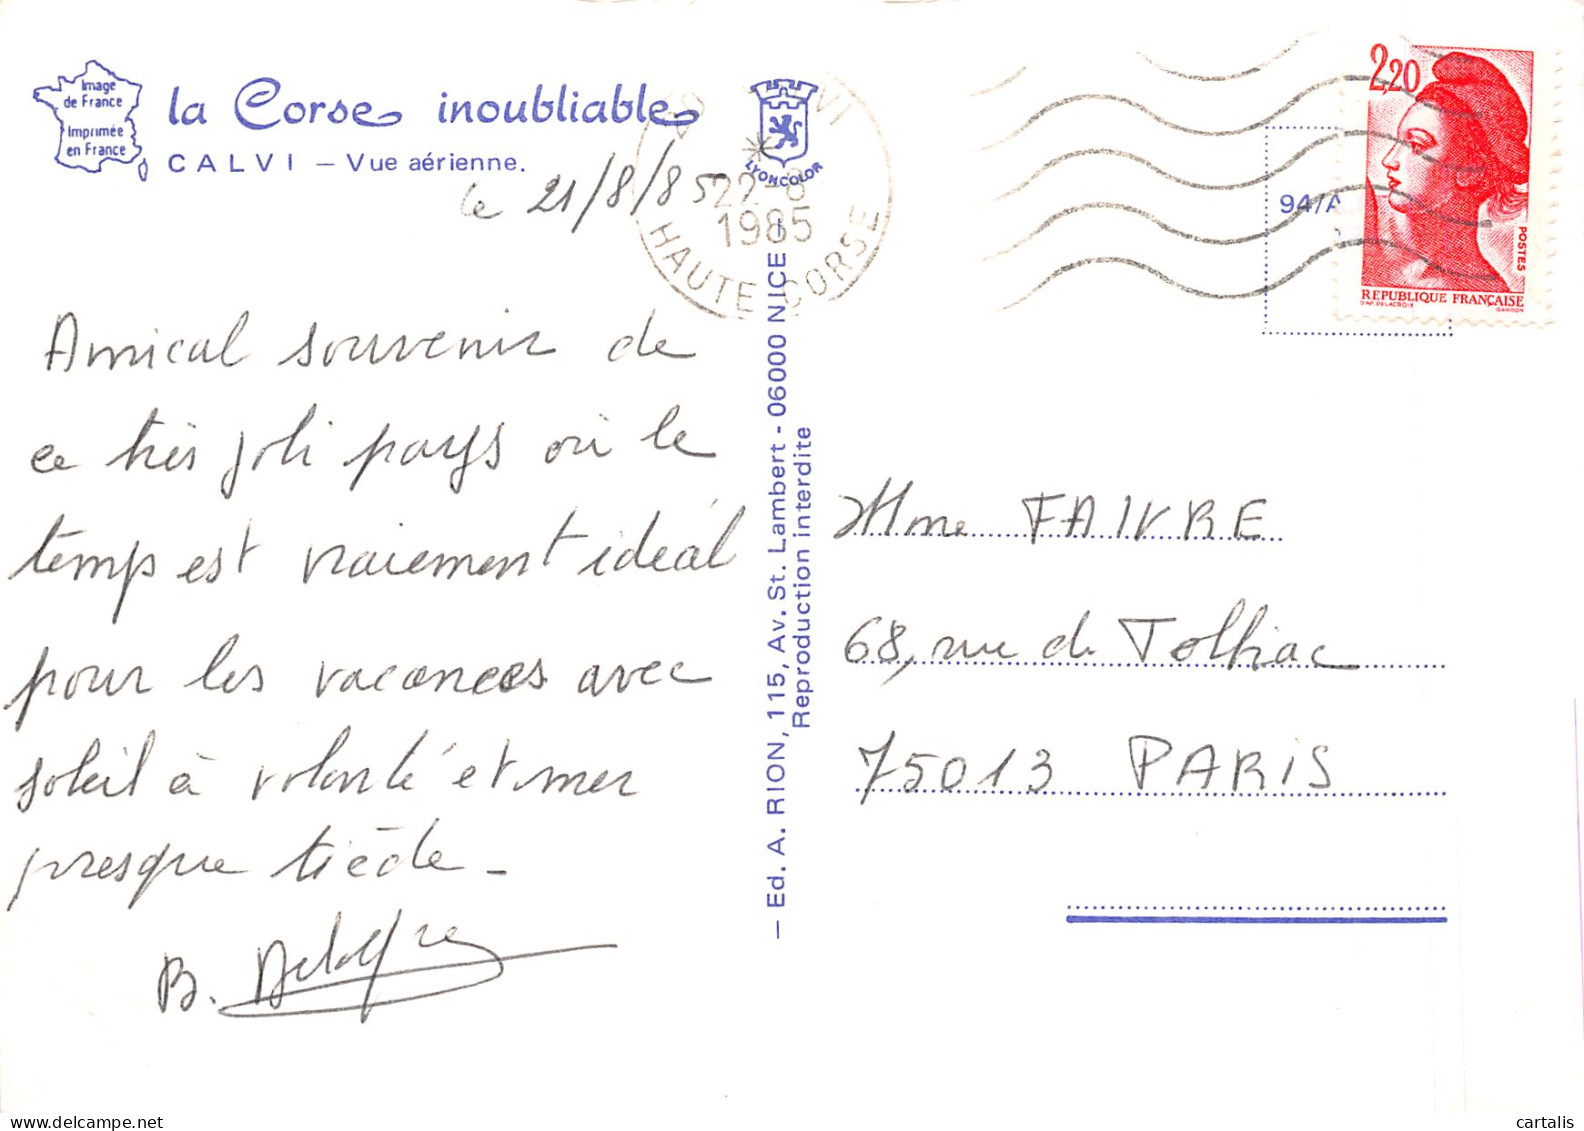 Image
de France
Imprimée
en France
la Corse inoubliable
CALVI – Vue aérienne.
LYONCOLOR
le 21/8/85
22-8
1985
HAUTE-CORSE
94/A
2,20
POSTES
REPUBLIQUE FRANÇAISE
D'AP. DELACROIX
GANDON
Amical souvenir de
ce très joli pays où le
temps est vraiement idéal
pour les vacances avec
soleil à volonté et mer
presque tiède -
B.
— Ed. A. RION, 115, Av. St. Lambert - 06000 NICE —
Reproduction interdite
Mme FAIVRE
68, rue de Tolbiac
75013 PARIS
cartalis